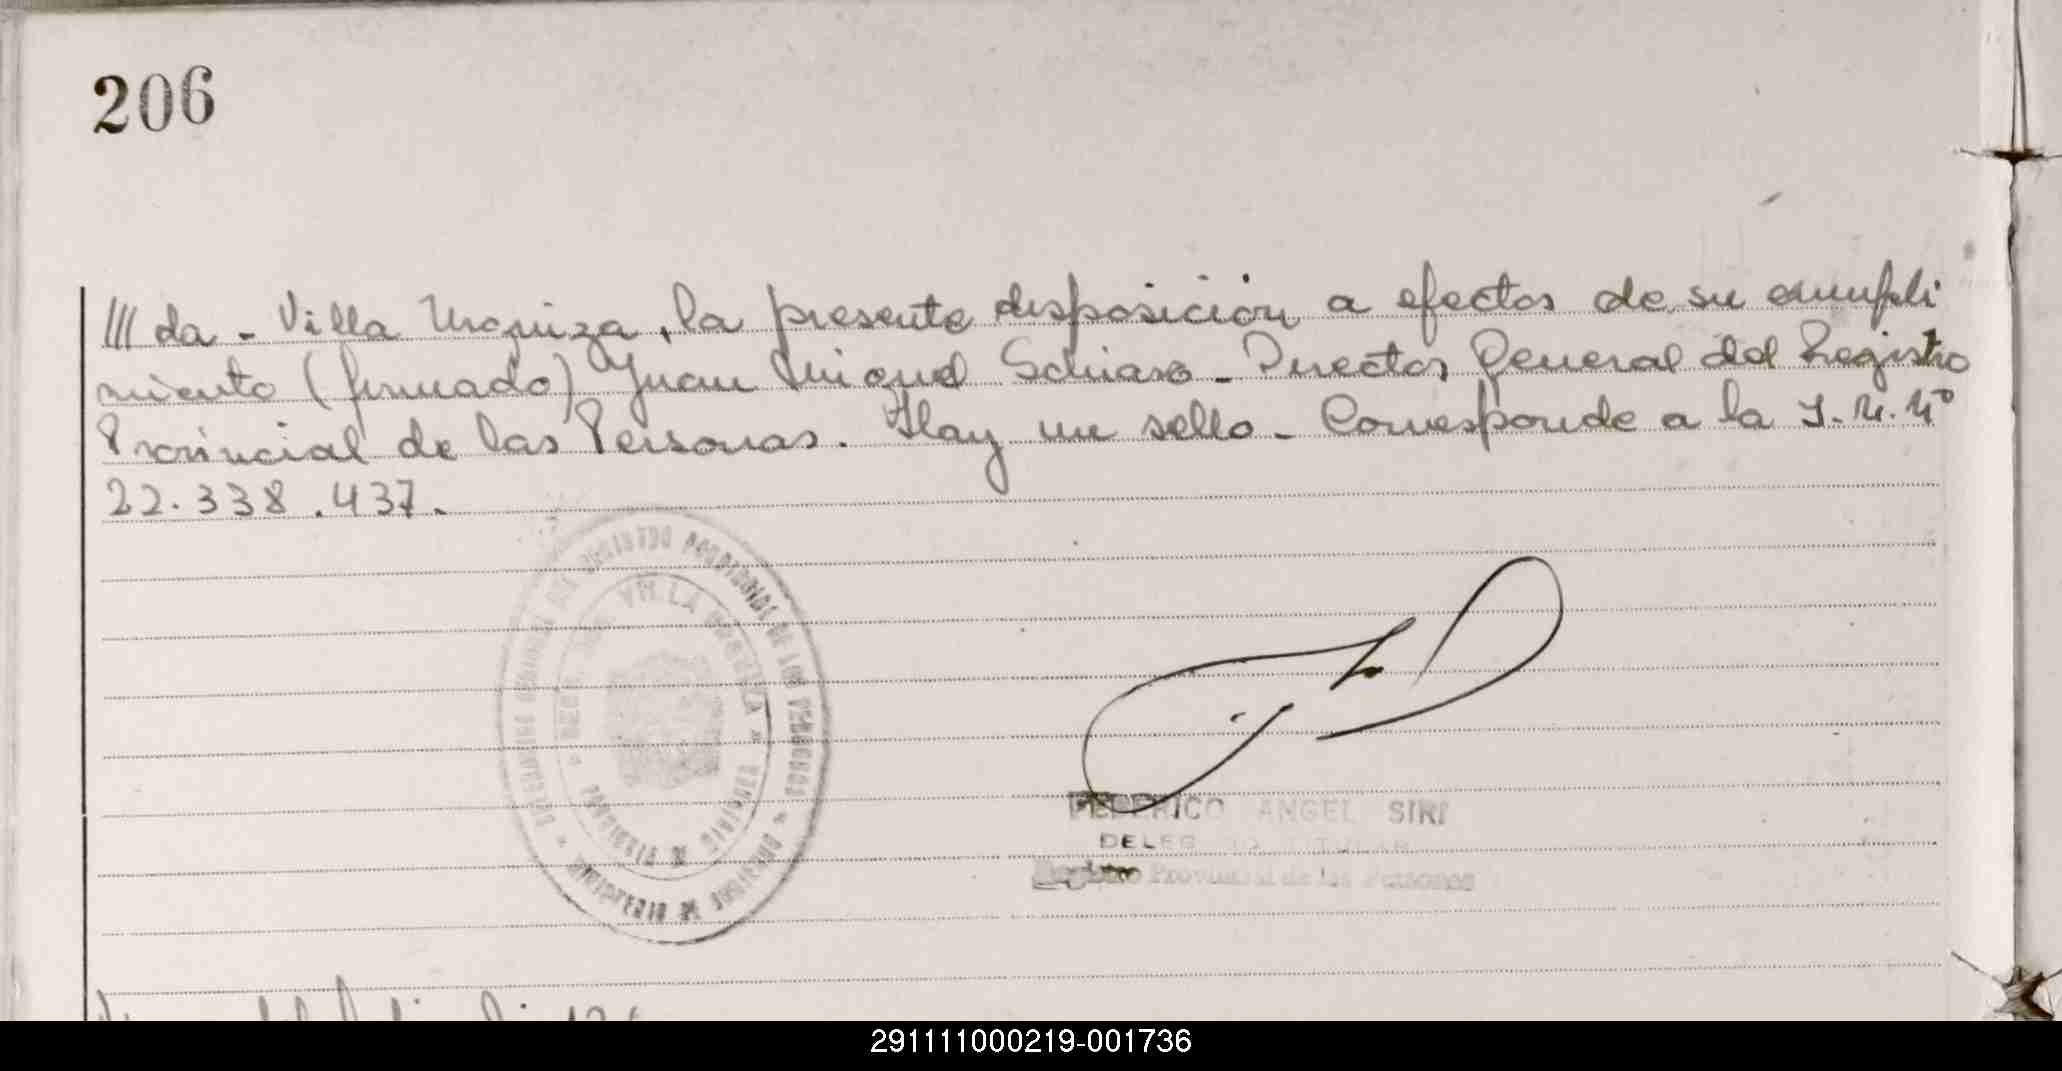 206
/// da - Villa Urquiza, la presente disposición a efectos de su cumpli
miento (firmado) Juan Miguel Schiaso - Director General del Registro
Provincial de las Personas. Hay un sello - Corresponde a la I. M. Nº
22.338.437.
VILLA URQUIZA
FEDERICO ANGEL SIRI
DELEGADO TITULAR
Registro Provincial de las Personas
291111000219-001736